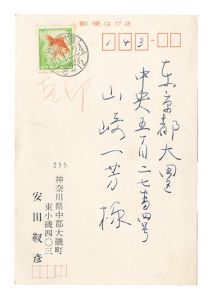 郵便はがき
143
東京都大田区
中央五ノ二七ノ四号
山崎一芳様
255
神奈川県中郡大磯町
東小磯四〇三
安田靫彦